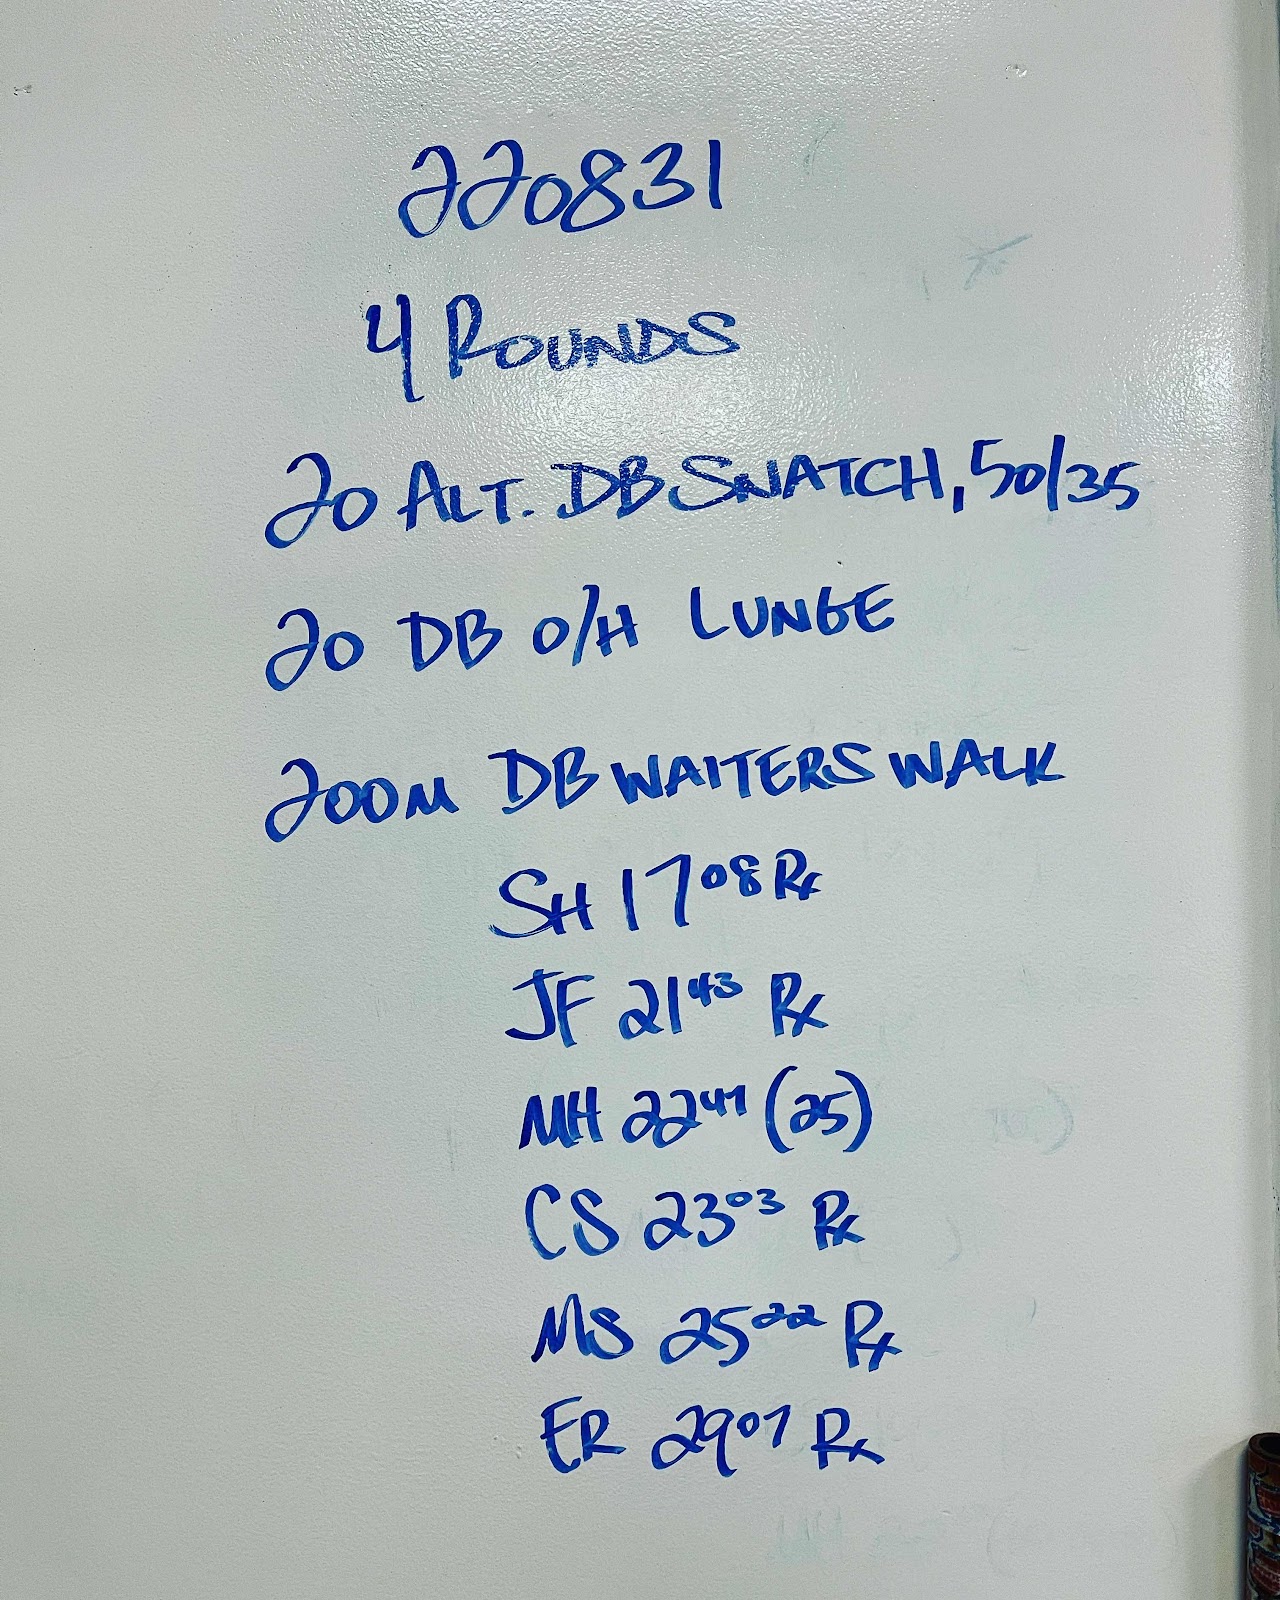 220831
4 ROUNDS
20 ALT. DB SNATCH, 50/35
20 DB O/H LUNGE
200M DB WAITERS WALK
SH 17 08 Rx
JF 21 43 Rx
MH 22 41 (25)
CS 23 03 Rx
MS 25 22 Rx
ER 29 07 Rx